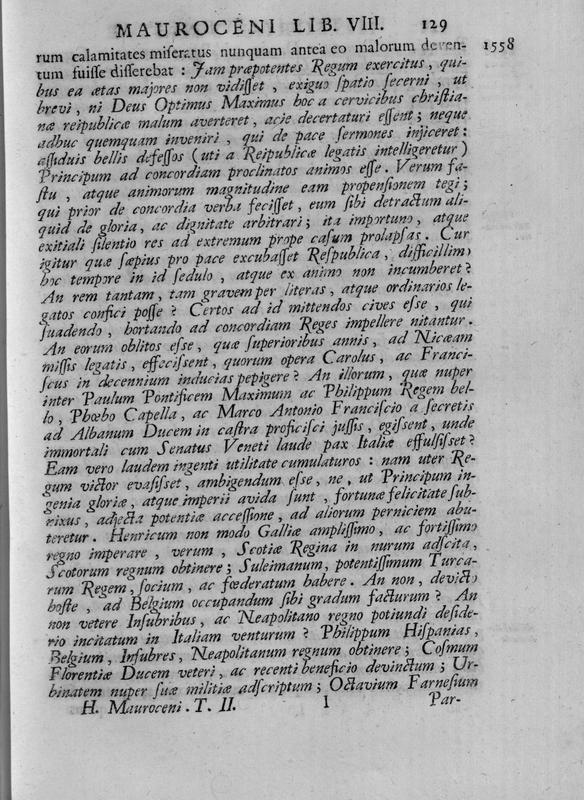 MAUROCENI LIB. VIII. 129
rum calamitates miseratus nunquam antea eo malorum deven- 1558
tum fuisse disserebat : Jam præpotentes Regum exercitus, qui-
bus ea ætas majores non vidisset, exiguo spatio secerni, ut
brevi, ni Deus Optimus Maximus hoc a cervicibus christia-
næ reipublicæ malum averteret, acie decertaturi essent; neque
adhuc quemquam inveniri, qui de pace sermones injiceret:
assiduis bellis defessos (uti a Reipublicæ legatis intelligeretur)
Principum ad concordiam proclinatos animos esse. Verum fa-
stu, atque animorum magnitudine eam propensionem tegi;
qui prior de concordia verba fecisset, eum sibi detractum ali-
quid de gloria, ac dignitate arbitrari; ita importuno, atque
exitiali silentio res ad extremum prope casum prolapsas. Cur
igitur quæ sæpius pro pace excubasset Respublica, difficillimo
hoc tempore in id sedulo, atque ex animo non incumberet?
An rem tantam, tam gravem per literas, atque ordinarios le-
gatos confici posse? Certos ad id mittendos cives esse, qui
suadendo, hortando ad concordiam Reges impellere nitantur.
An eorum oblitos esse, quæ superioribus annis, ad Nicæam
missis legatis, effecissent, quorum opera Carolus, ac Franci-
scus in decennium inducias pepigere? An illorum, quæ nuper
inter Paulum Pontificem Maximum ac Philippum Regem bel-
lo, Phœbo Capella, ac Marco Antonio Franciscio a secretis
ad Albanum Ducem in castra proficisci jussis, egissent, unde
immortali cum Senatus Veneti laude pax Italiæ effulsisset?
Eam vero laudem ingenti utilitate cumulaturos : nam uter Re-
gum victor evasisset, ambigendum esse, ne, ut Principum in-
genia gloriæ, atque imperii avida sunt, fortunæ felicitate sub-
nixus, adjecta potentiæ accessione, ad aliorum perniciem abu-
teretur. Henricum non modo Galliæ amplissimo, ac fortissimo
regno imperare, verum, Scotiæ Regina in nurum adscita,
Scotorum regnum obtinere; Suleimanum, potentissimum Turca-
rum Regem, socium, ac fœderatum habere. An non, devicto
hoste, ad Belgium occupandum sibi gradum facturum? An
non vetere Insubribus, ac Neapolitano regno potiundi deside-
rio incitatum in Italiam venturum? Philippum Hispanias,
Belgium, Insubres, Neapolitanum regnum obtinere; Cosmum
Florentiæ Ducem veteri, ac recenti beneficio devinctum; Ur-
binatem nuper suæ militiæ adscriptum; Octavium Farnesium
H. Mauroceni. T. II. I Par-